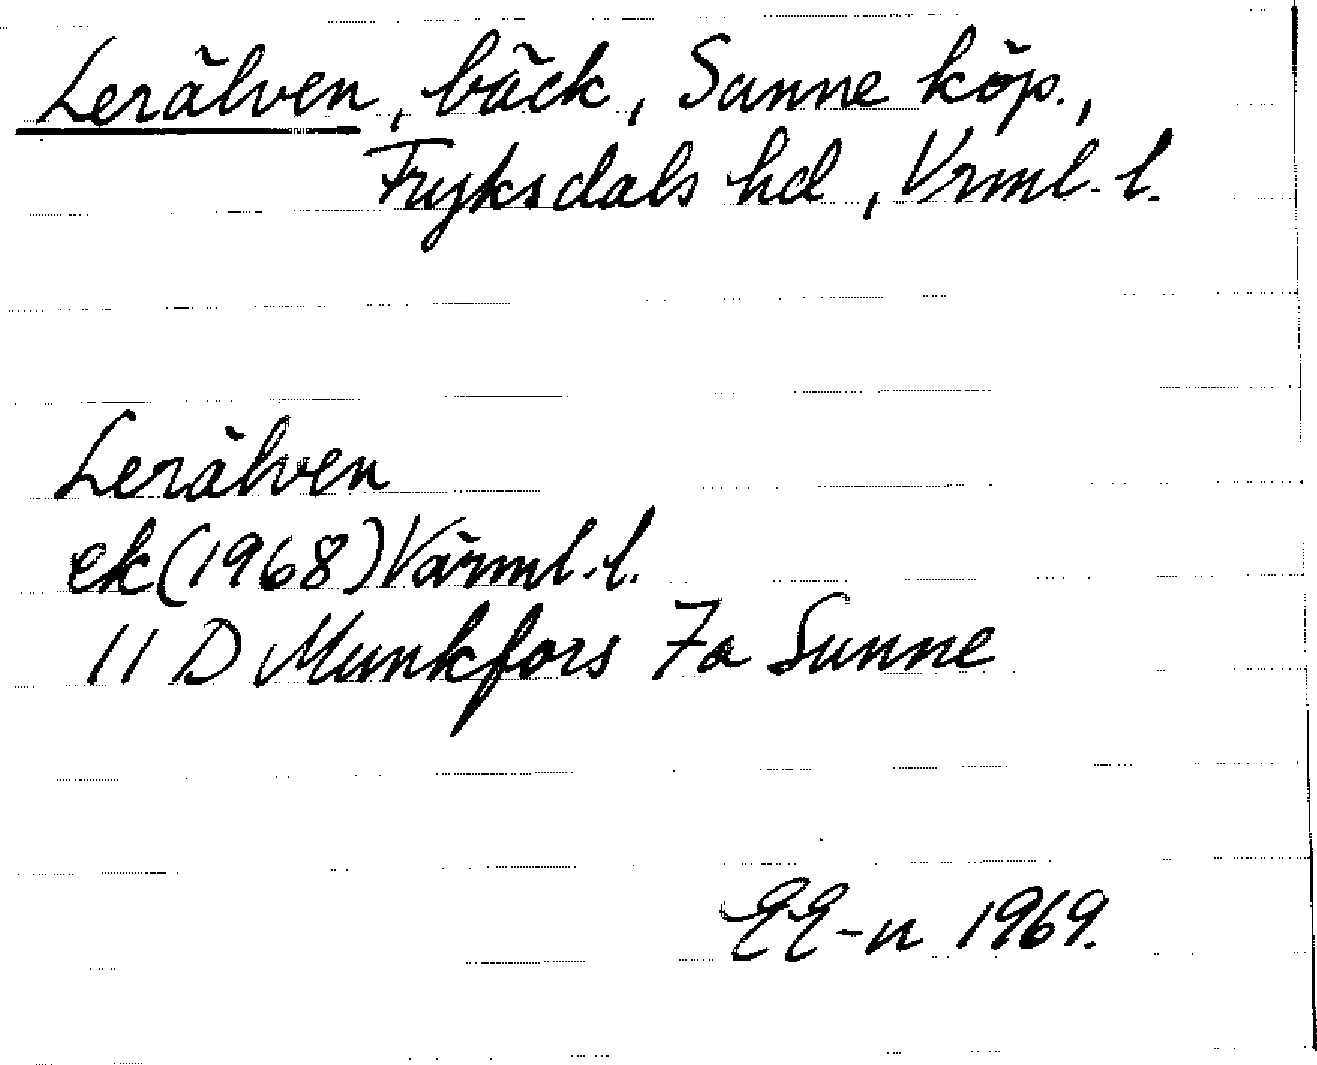 Lerälven, bäck, Sunne köp.,
Fryksdals hd, Vrml. l.
Lerälven
ek (1968) Värml. l.
11 D Munkfors 7a Sunne
EE-n 1969.